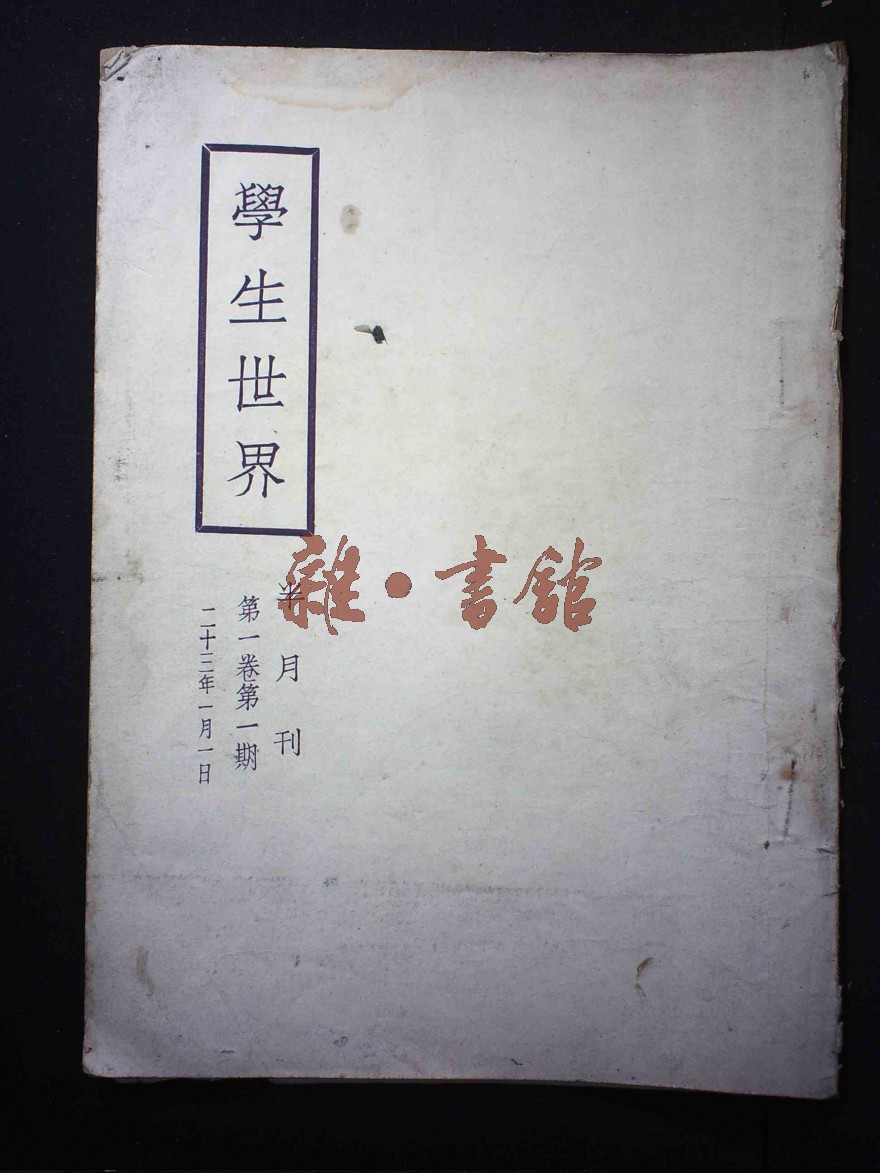 學生世界
半月刊
第一卷第一期
二十三年一月一日
雜·書館